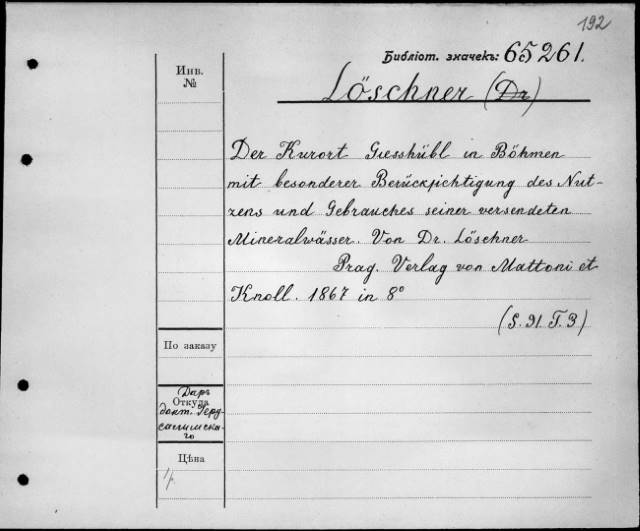 192
Библіот. значекъ: 65261.
Инв.
№
Löschner (Dr)
Der Kurort Giesshübl in Böhmen
mit besonderer Berücksichtigung des Nut-
zens und Gebrauches seiner versendeten
Mineralwässer. Von Dr. Löschner
Prag. Verlag von Mattoni et
Knoll. 1867 in 8°
(S. 91. T. 3)
По заказу
Даръ
Откуда
докт. Герд-
Цѣна